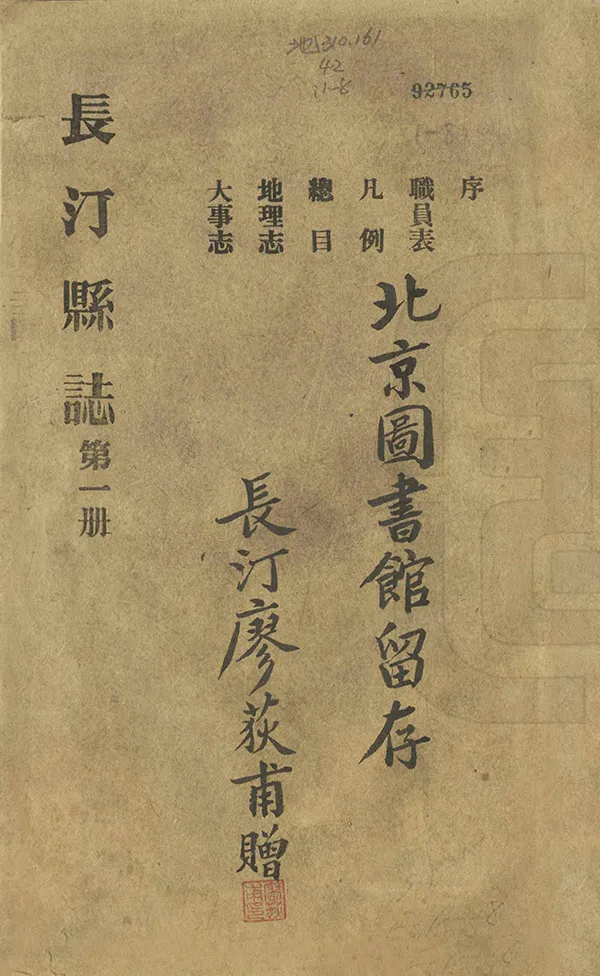 地310.161
42
:1-8
92765
序
職員表
凡例
總目
地理志
大事志
北京圖書館留存
長汀廖荻甫贈
長汀縣誌第一册